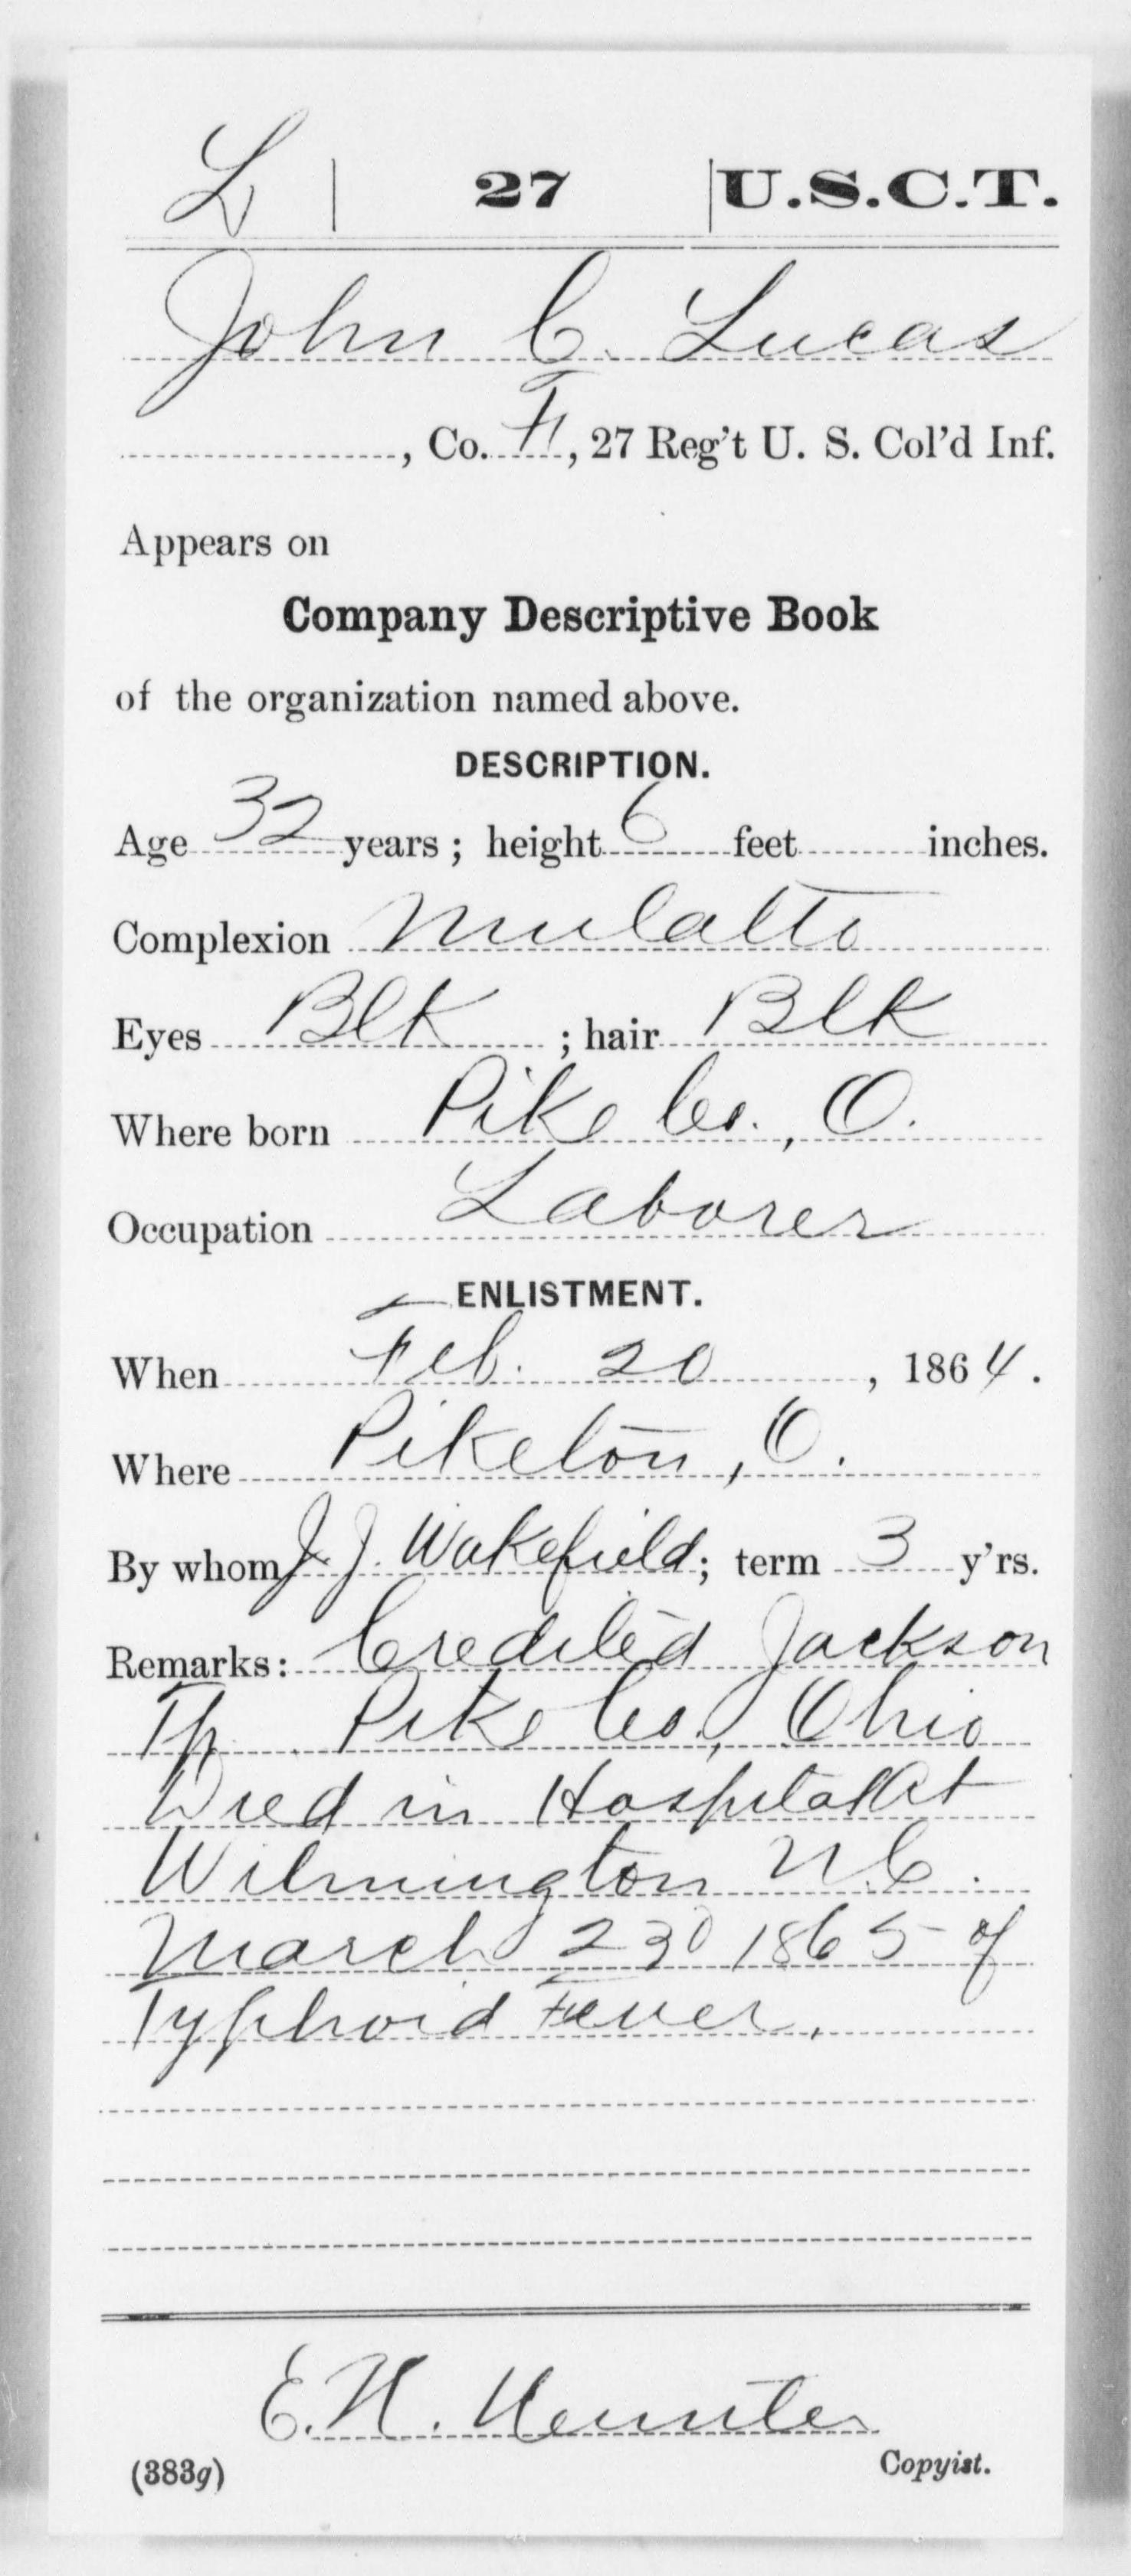 L | 27 | U.S.C.T.
John C. Lucas
, Co. F, 27 Reg't U. S. Col'd Inf.
Appears on
Company Descriptive Book
of the organization named above.
DESCRIPTION.
Age 32 years; height 6 feet inches.
Complexion Mulatto
Eyes Blk ; hair Blk
Where born Pike Co., O.
Occupation Laborer
ENLISTMENT.
When Feb. 20, 1864.
Where Piketon, O.
By whom J. J. Wakefield; term 3 y'rs.
Remarks: Credited Jackson
Tp. Pike Co., Ohio
Died in Hospital At
Wilmington N.C.
March 23d 1865 of
Typhoid Fever.
E. H.
(383g) Copyist.